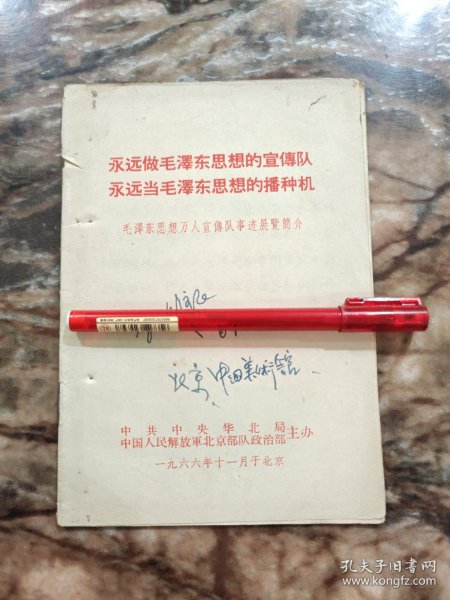 永远做毛澤东思想的宣傳队
永远当毛澤东思想的播种机
毛澤东思想万人宣傳队事迹展覽簡介
北京中国美术馆
中共中央华北局
中国人民解放軍北京部队政治部 主办
一九六六年十一月于北京
孔夫子旧书网
www.kongfz.com